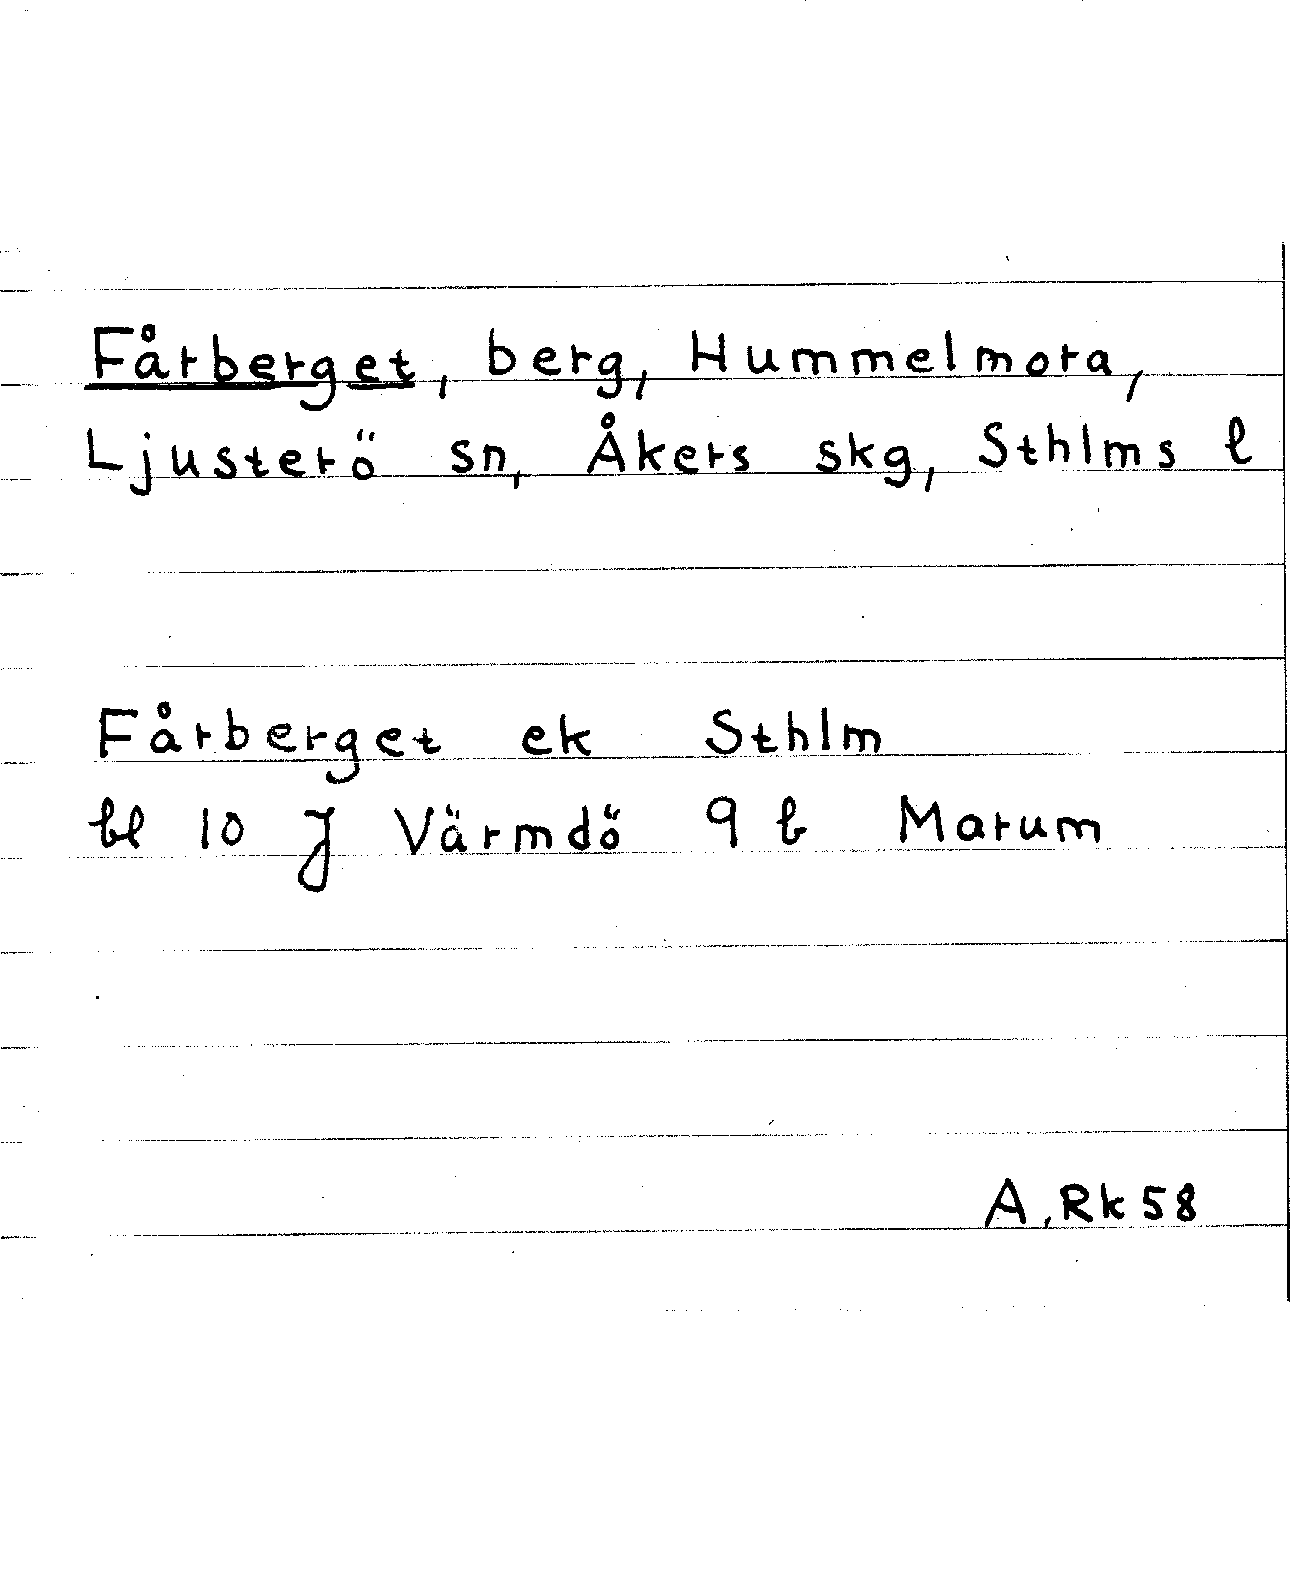 Fårberget, berg, Hummelmora,
Ljusterö sn, Åkers skg, Sthlms l
Fårberget ek Sthlm
bl 10 J Värmdö 9 b Marum
A. Rk 58